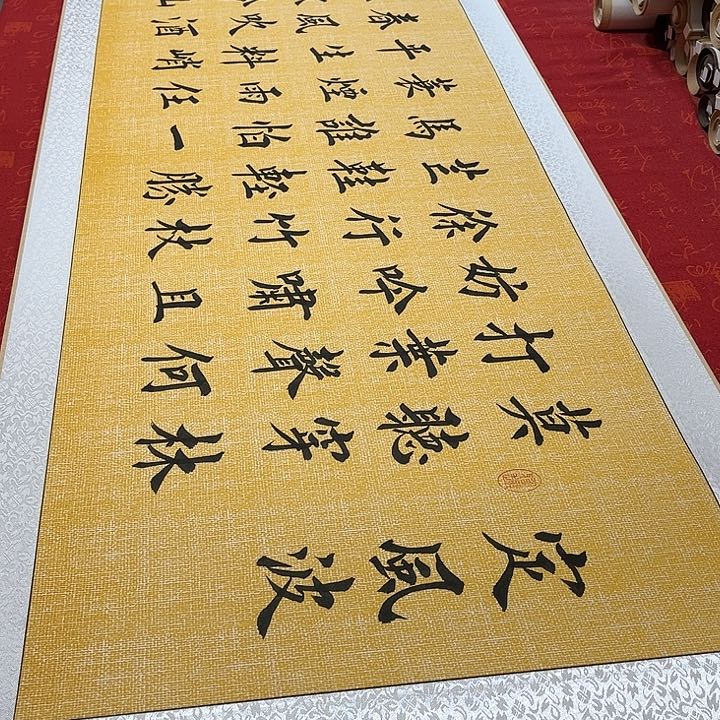 定風波
莫聽穿林
打葉聲何
妨吟嘯且
徐行竹杖
芒鞋輕勝
馬誰怕一
蓑煙雨任
平生料峭
春風吹酒
山